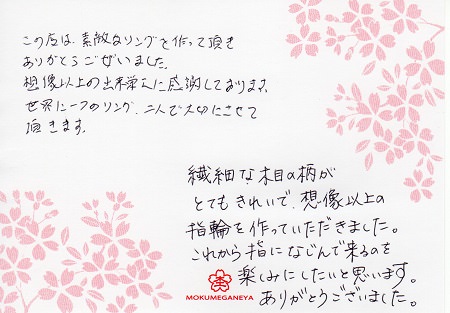 この度は、素敵なリングを作って頂き
ありがとうございました。
想像以上の出来栄えに感謝しております。
世界に一つのリング、二人で大切にさせて
頂きます。
繊細な木目の柄が
とてもきれいで、想像以上の
指輪を作っていただきました。
これから指になじんで来るのを
楽しみにしたいと思います。
ありがとうございました。
MOKUMEGANEYA